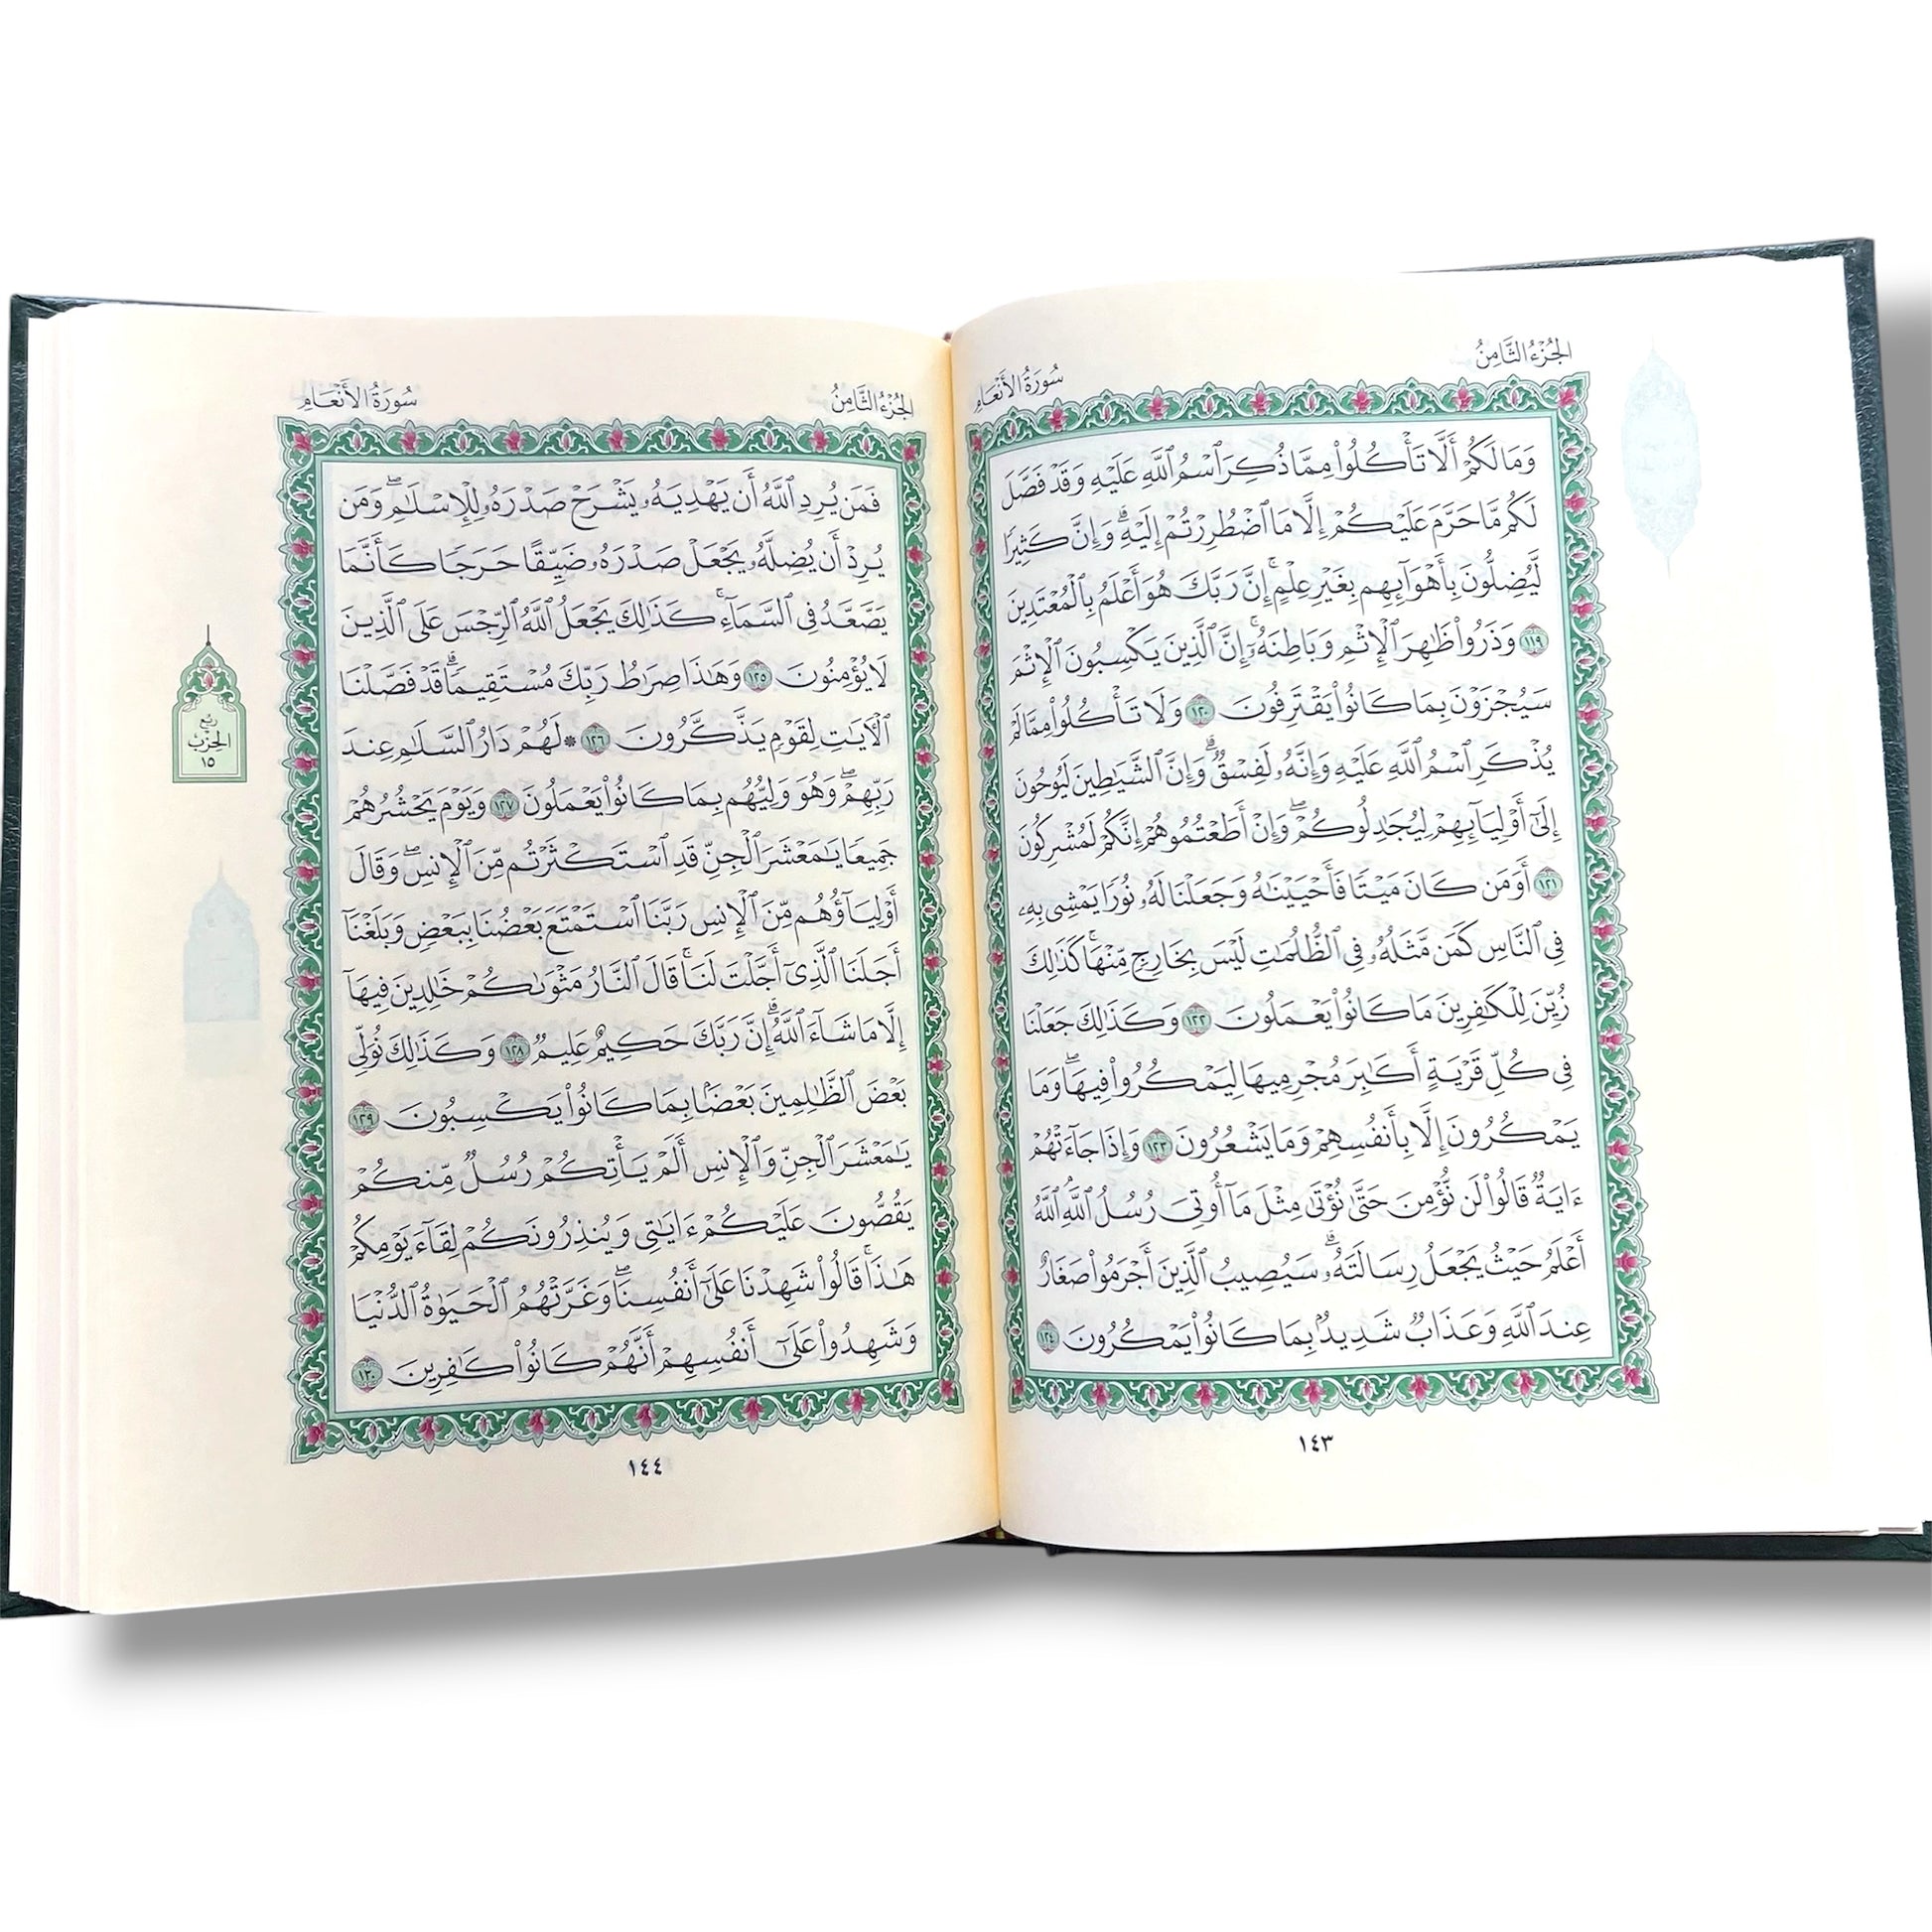 الجُزْءُ الثَّامِنُ
سُورَةُ الأَنْعَامِ
وَمَا لَكُمْ أَلَّا تَأْكُلُوا۟ مِمَّا ذُكِرَ ٱسْمُ ٱللَّهِ عَلَيْهِ وَقَدْ فَصَّلَ
لَكُم مَّا حَرَّمَ عَلَيْكُمْ إِلَّا مَا ٱضْطُرِرْتُمْ إِلَيْهِ ۗ وَإِنَّ كَثِيرًا
لَّيُضِلُّونَ بِأَهْوَآئِهِم بِغَيْرِ عِلْمٍ ۚ إِنَّ رَبَّكَ هُوَ أَعْلَمُ بِٱلْمُعْتَدِينَ
١١٩ وَذَرُوا۟ ظَٰهِرَ ٱلْإِثْمِ وَبَاطِنَهُۥٓ ۚ إِنَّ ٱلَّذِينَ يَكْسِبُونَ ٱلْإِثْمَ
سَيُجْزَوْنَ بِمَا كَانُوا۟ يَقْتَرِفُونَ ١٢٠ وَلَا تَأْكُلُوا۟ مِمَّا لَمْ
يُذْكَرِ ٱسْمُ ٱللَّهِ عَلَيْهِ وَإِنَّهُۥ لَفِسْقٌ ۗ وَإِنَّ ٱلشَّيَٰطِينَ لَيُوحُونَ
إِلَىٰٓ أَوْلِيَآئِهِمْ لِيُجَٰدِلُوكُمْ ۖ وَإِنْ أَطَعْتُمُوهُمْ إِنَّكُمْ لَمُشْرِكُونَ
١٢١ أَوَمَن كَانَ مَيْتًا فَأَحْيَيْنَٰهُ وَجَعَلْنَا لَهُۥ نُورًا يَمْشِى بِهِۦ
فِى ٱلنَّاسِ كَمَن مَّثَلُهُۥ فِى ٱلظُّلُمَٰتِ لَيْسَ بِخَارِجٍ مِّنْهَا ۚ كَذَٰلِكَ
زُيِّنَ لِلْكَٰفِرِينَ مَا كَانُوا۟ يَعْمَلُونَ ١٢٢ وَكَذَٰلِكَ جَعَلْنَا
فِى كُلِّ قَرْيَةٍ أَكَٰبِرَ مُجْرِمِيهَا لِيَمْكُرُوا۟ فِيهَا ۖ وَمَا
يَمْكُرُونَ إِلَّا بِأَنفُسِهِمْ وَمَا يَشْعُرُونَ ١٢٣ وَإِذَا جَآءَتْهُمْ
ءَايَةٌ قَالُوا۟ لَن نُّؤْمِنَ حَتَّىٰ نُؤْتَىٰ مِثْلَ مَآ أُوتِىَ رُسُلُ ٱللَّهِ ۘ ٱللَّهُ
أَعْلَمُ حَيْثُ يَجْعَلُ رِسَالَتَهُۥ ۗ سَيُصِيبُ ٱلَّذِينَ أَجْرَمُوا۟ صَغَارٌ
عِندَ ٱللَّهِ وَعَذَابٌ شَدِيدٌۢ بِمَا كَانُوا۟ يَمْكُرُونَ ١٢٤
١٤٣
الجُزْءُ الثَّامِنُ
سُورَةُ الأَنْعَامِ
فَمَن يُرِدِ ٱللَّهُ أَن يَهْدِيَهُۥ يَشْرَحْ صَدْرَهُۥ لِلْإِسْلَٰمِ ۖ وَمَن
يُرِدْ أَن يُضِلَّهُۥ يَجْعَلْ صَدْرَهُۥ ضَيِّقًا حَرَجًا كَأَنَّمَا
يَصَّعَّدُ فِى ٱلسَّمَآءِ ۚ كَذَٰلِكَ يَجْعَلُ ٱللَّهُ ٱلرِّجْسَ عَلَى ٱلَّذِينَ
لَا يُؤْمِنُونَ ١٢٥ وَهَٰذَا صِرَٰطُ رَبِّكَ مُسْتَقِيمًا ۗ قَدْ فَصَّلْنَا
ٱلْءَايَٰتِ لِقَوْمٍ يَذَّكَّرُونَ ١٢٦ ۞ لَهُمْ دَارُ ٱلسَّلَٰمِ عِندَ
رَبِّهِمْ ۖ وَهُوَ وَلِيُّهُم بِمَا كَانُوا۟ يَعْمَلُونَ ١٢٧ وَيَوْمَ يَحْشُرُهُمْ
جَمِيعًا يَٰمَعْشَرَ ٱلْجِنِّ قَدِ ٱسْتَكْثَرْتُم مِّنَ ٱلْإِنسِ ۖ وَقَالَ
أَوْلِيَآؤُهُم مِّنَ ٱلْإِنسِ رَبَّنَا ٱسْتَمْتَعَ بَعْضُنَا بِبَعْضٍ وَبَلَغْنَآ
أَجَلَنَا ٱلَّذِىٓ أَجَّلْتَ لَنَا ۚ قَالَ ٱلنَّارُ مَثْوَىٰكُمْ خَٰلِدِينَ فِيهَآ
إِلَّا مَا شَآءَ ٱللَّهُ ۗ إِنَّ رَبَّكَ حَكِيمٌ عَلِيمٌ ١٢٨ وَكَذَٰلِكَ نُوَلِّى
بَعْضَ ٱلظَّٰلِمِينَ بَعْضًۢا بِمَا كَانُوا۟ يَكْسِبُونَ ١٢٩
يَٰمَعْشَرَ ٱلْجِنِّ وَٱلْإِنسِ أَلَمْ يَأْتِكُمْ رُسُلٌ مِّنكُمْ
يَقُصُّونَ عَلَيْكُمْ ءَايَٰتِى وَيُنذِرُونَكُمْ لِقَآءَ يَوْمِكُمْ
هَٰذَا ۚ قَالُوا۟ شَهِدْنَا عَلَىٰٓ أَنفُسِنَا ۖ وَغَرَّتْهُمُ ٱلْحَيَوٰةُ ٱلدُّنْيَا
وَشَهِدُوا۟ عَلَىٰٓ أَنفُسِهِمْ أَنَّهُمْ كَانُوا۟ كَٰفِرِينَ ١٣٠
رُبْعُ
الحِزْبِ
١٥
١٤٤